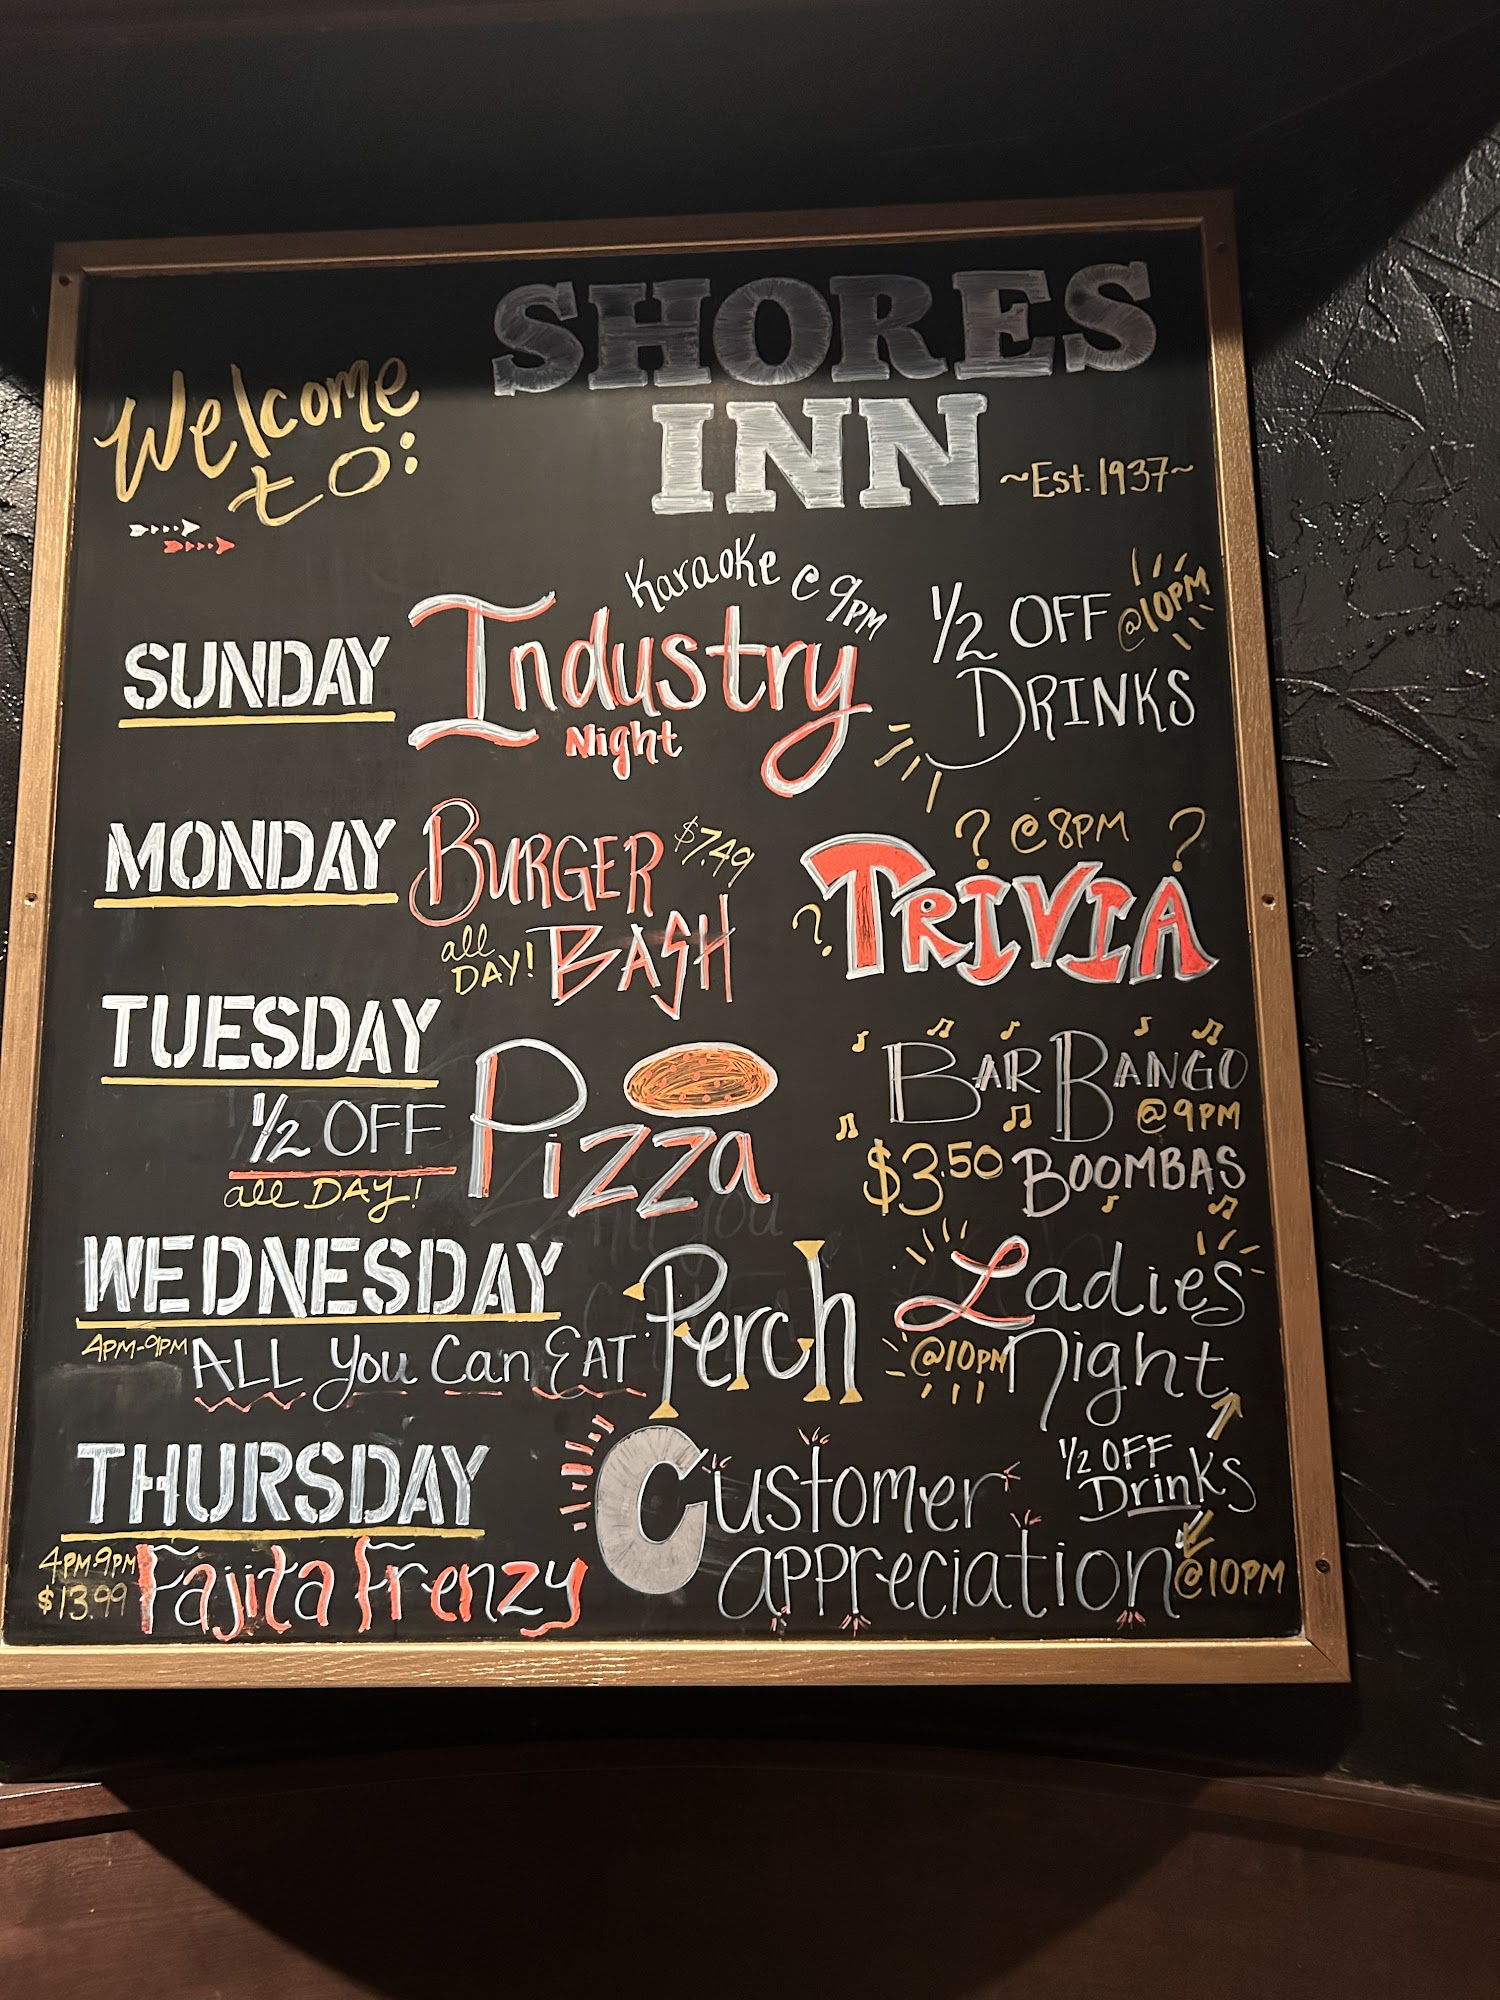 Welcome
to:
SHORES
INN
~Est. 1937~
SUNDAY
Karaoke @ 9PM
Industry
Night
1/2 OFF @10PM
DRINKS
MONDAY
BURGER $7.49
all DAY! BASH
? @8PM ?
? TRIVIA
TUESDAY
1/2 OFF
all DAY!
Pizza
BAR BANGO
@ 9PM
$3.50 BOOMBAS
WEDNESDAY
4PM-9PM ALL You Can EAT Perch
Ladies
@10PM Night
1/2 OFF
Drinks
THURSDAY
4PM-9PM
$13.99
Fajita Frenzy
Customer
appreciation @10PM